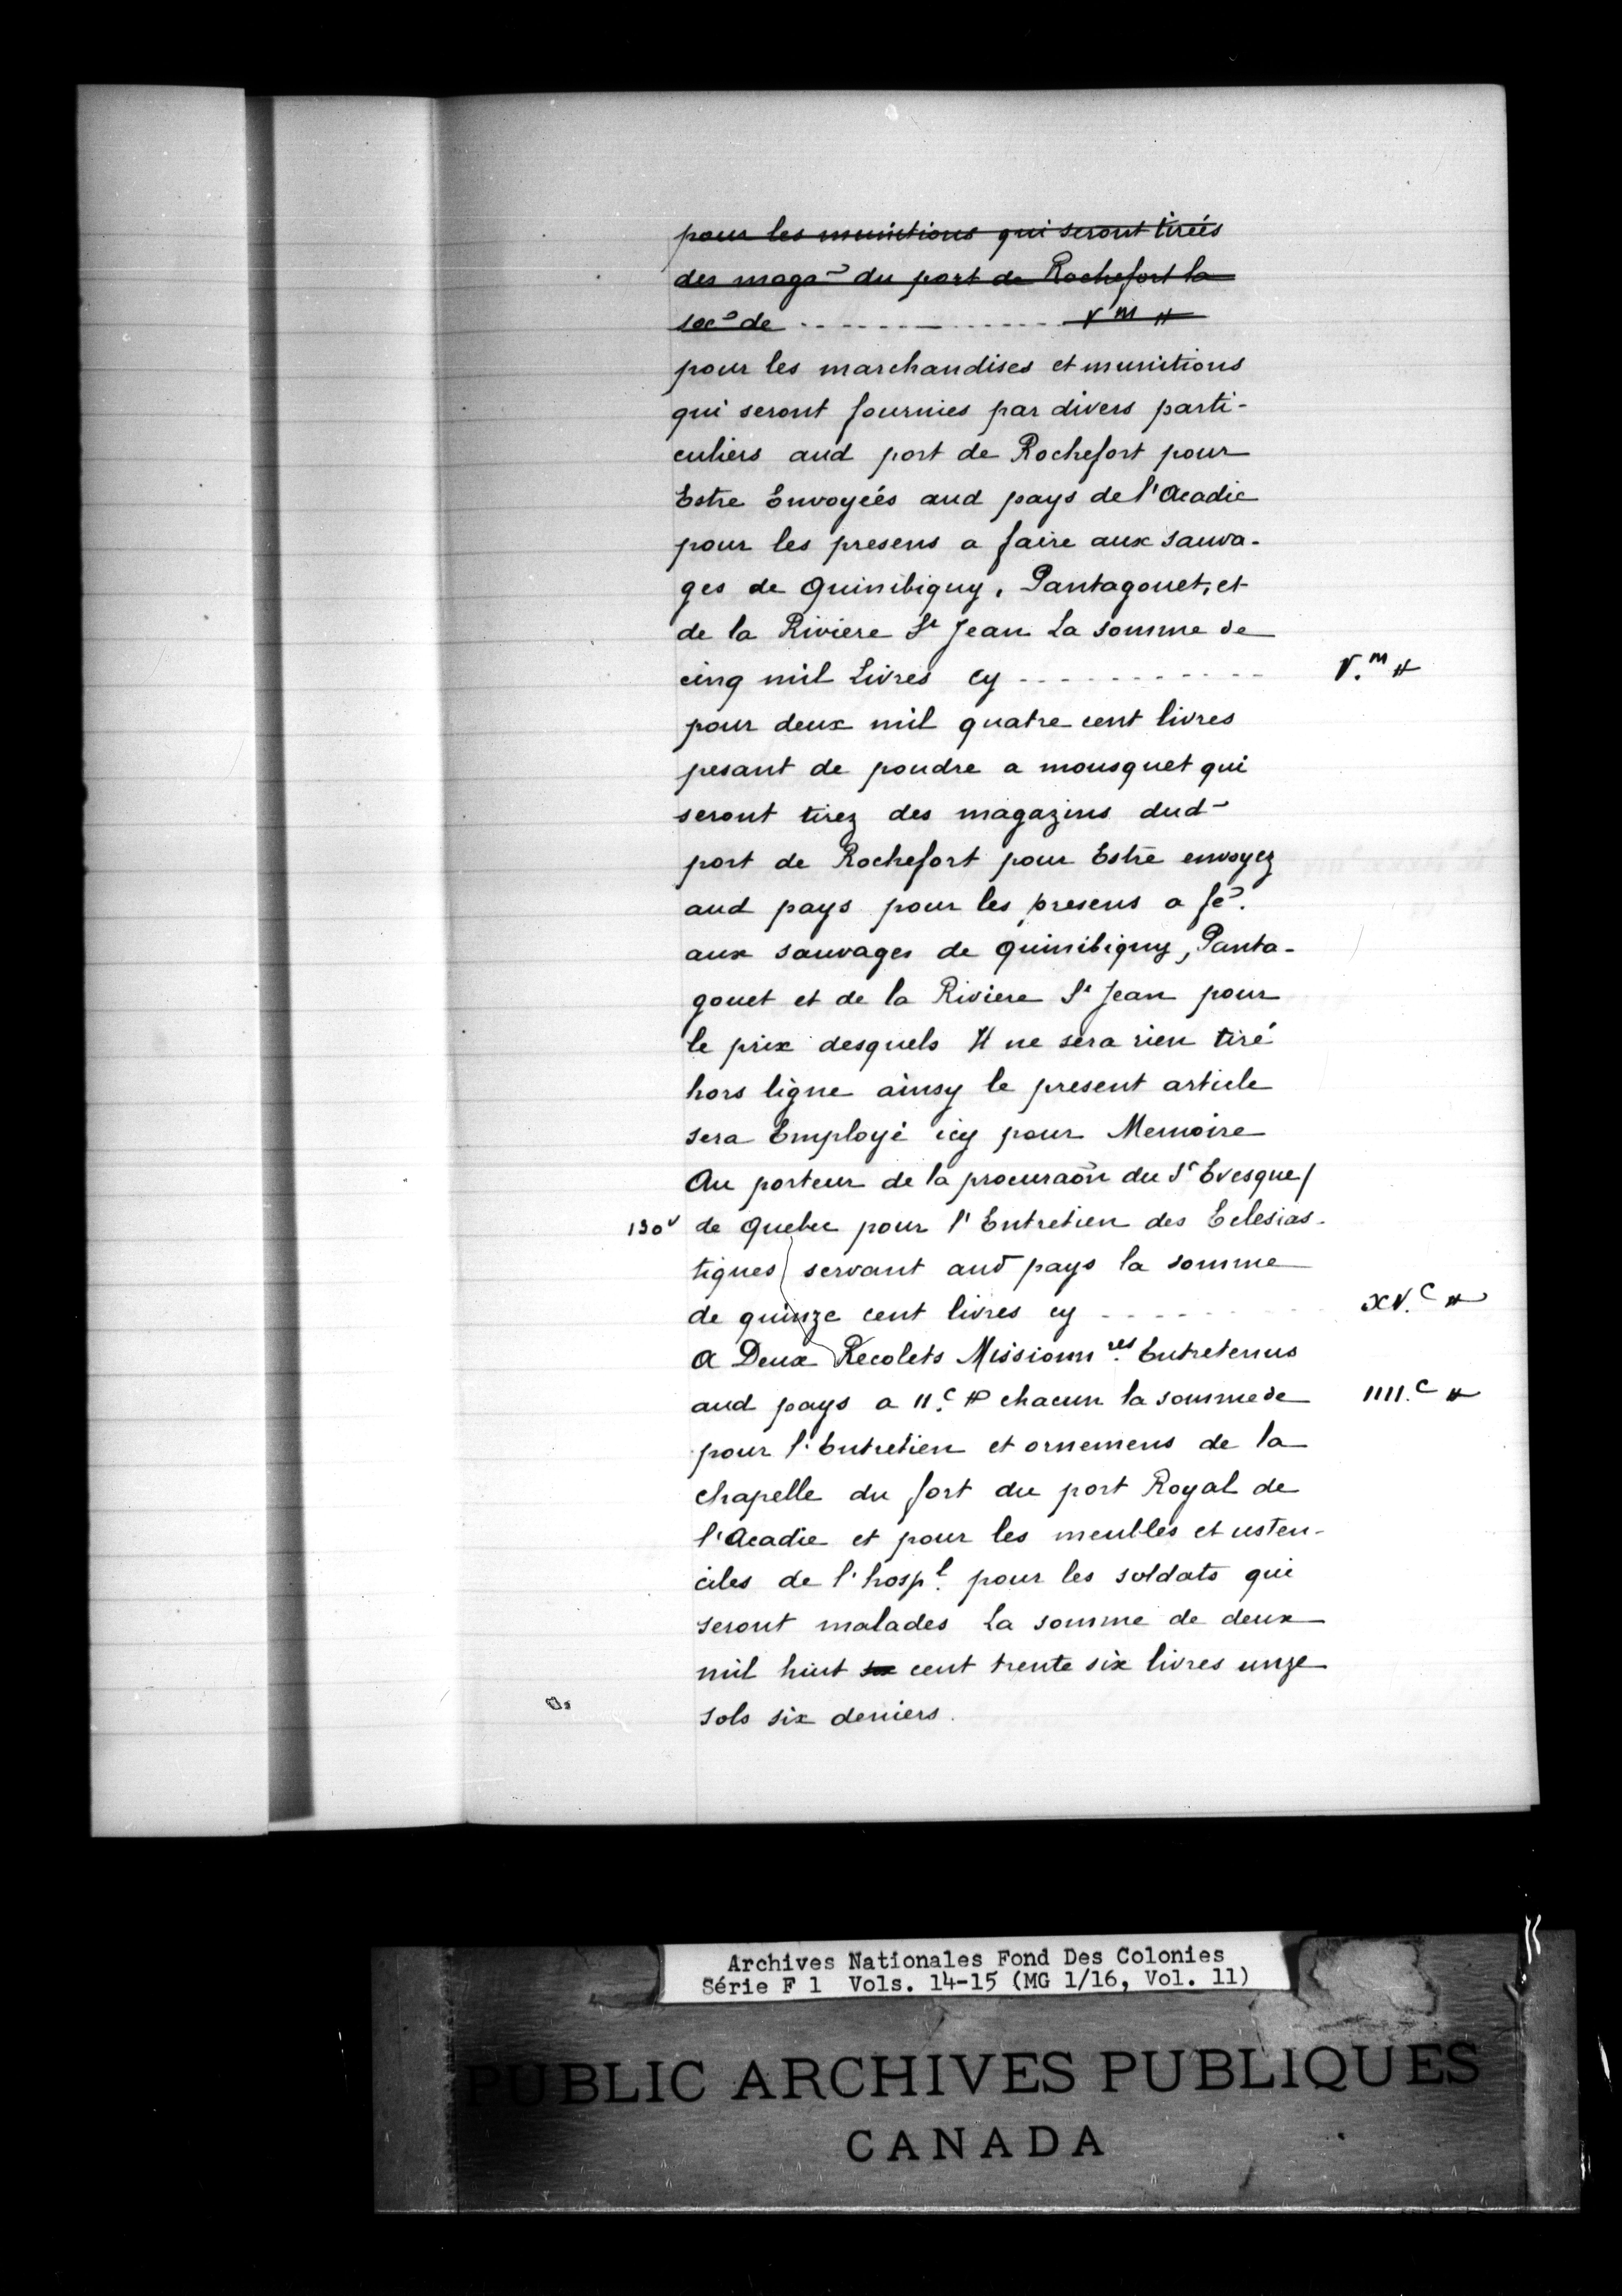 pour les munitions qui seront tirées
des maga~ du port de Rochefort la
soe~ de ................ V^m ₶
pour les marchandises et munitions
qui seront fournies par divers parti-
culiers aud port de Rochefort pour
Estre Envoyées aud pays de l'Acadie
pour les presens a faire aux sauva-
ges de Quinibiguy, Pantagouet, et
de la Riviere St Jean La somme de
cinq mil Livres cy ........... V.^m ₶
pour deux mil quatre cent livres
pesant de poudre a mousquet qui
seront tirez des magazins dud~
port de Rochefort pour Estre envoyez
aud pays pour les presens a fe~.
aux sauvages de Quinibiguy, Panta-
gouet et de la Riviere St Jean pour
le prix desquels Il ne sera rien tiré
hors ligne ainsy le present article
sera Employé icy pour Memoire
Au porteur de la procuraõn du Sr Evesque/
130v de Quebec pour l'Entretien des Eclesias-
tiques servant aud pays la somme
de quinze cent livres cy ........ XV.^C ₶
A Deux Recolets Missionn^res. Entretenus
aud pays a II.^C ₶ chacun la somme de IIII.^C ₶
pour l'Entretien et ornemens de la
chapelle du fort du port Royal de
l'Acadie et pour les meubles et usten-
ciles de l'hosp^l. pour les soldats qui
seront malades La somme de deux
mil huit six cent trente six livres unze
sols six deniers.
Archives Nationales Fond Des Colonies
Série F 1 Vols. 14-15 (MG 1/16, Vol. 11)
PUBLIC ARCHIVES PUBLIQUES
CANADA